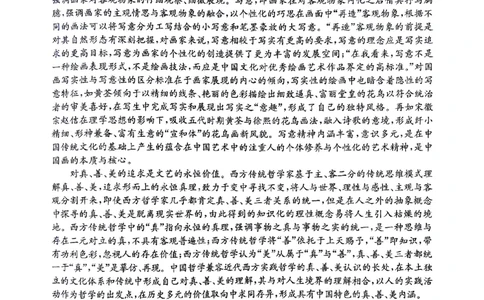 臆,强调画家的主观情思与客观物象的融合,以个性化的巧思在画面中“再造”客观物象,根据不
同的画法可以将写意分为工写结合的小写意和笔墨豪放的大写意。“再造”客观物象的前提是
对其自然形态有深刻把握,对画家来说,写意相较于写实有更高的要求,写意的理念应是写实追
求的更高目标,写意为画家的个性化的创造提供了更为丰富的发展空间;“在我看来,写意不是
一种绘画表现形式,不是绘画技法,而应是中国文化对优秀绘画艺术作品界定的高标准。”对国
画写实性与写意性的区分标准在于画家展现的内心的倾向,写实性的绘画中也暗含着隐性的写
意特征,如黄荃倾向于以精细的线条、艳丽的色彩描绘出细致逼真、富丽堂皇的花鸟以符合统治
者的审美喜好,在写生中完成写实和展现出写实之“意趣”,形成了自己的独特风格。再如宋徽
宗赵佶在理学思想的影响下,吸收五代时期黄荃与徐熙的花鸟画法,融入诗歌的意境,形成纤小
精细、形神兼备、富有生意的“宣和体”的花鸟画新风貌。写意精神内涵丰富,意识多元,是在中
国传统文化的基础上产生的蕴含在中国艺术中的注重人的个体修养与个性化的艺术精神,是中
国画的本质与核心。
对真、善、美的追求是文艺的永恒价值。西方传统哲学家基于主、客二分的传统思维模式理
解真、善、美,追求形而上的永恒真理,致力于变中寻找不变,将人与世界、理性与感性、主观与客
观分割开来,即使西方哲学家几乎都肯定真、善、美三者关系的统一,但是在人之外的抽象概念
中探寻的真、善、美是脱离现实世界的,由此得到的知识化的理性概念易将人生引入枯燥的境
地。西方传统哲学中的“真”指向永恒的真理,强调事物之真与事物之实的统一,是一种思维与
存在二元对立的真,不具有客观普遍性;西方传统哲学将“善”依托于上天赐予,“善”即知识,带
有功利色彩,忽视人的存在价值;西方传统哲学认为“美”从属于“真”与“善”,真、善、美三者都统
一于“真”,“美”是摹仿、再现。中国哲学兼容近代西方实践哲学的真、善、美认识的长处,在本土独
立的文化体系和传统中形成自己对真、善、美的理解,其与对人生境界的理解相合,以人的实践活
动作为哲学的出发点,在历史多元的价值取向中求同存异,形成具有中国特色的真、善、美内涵。